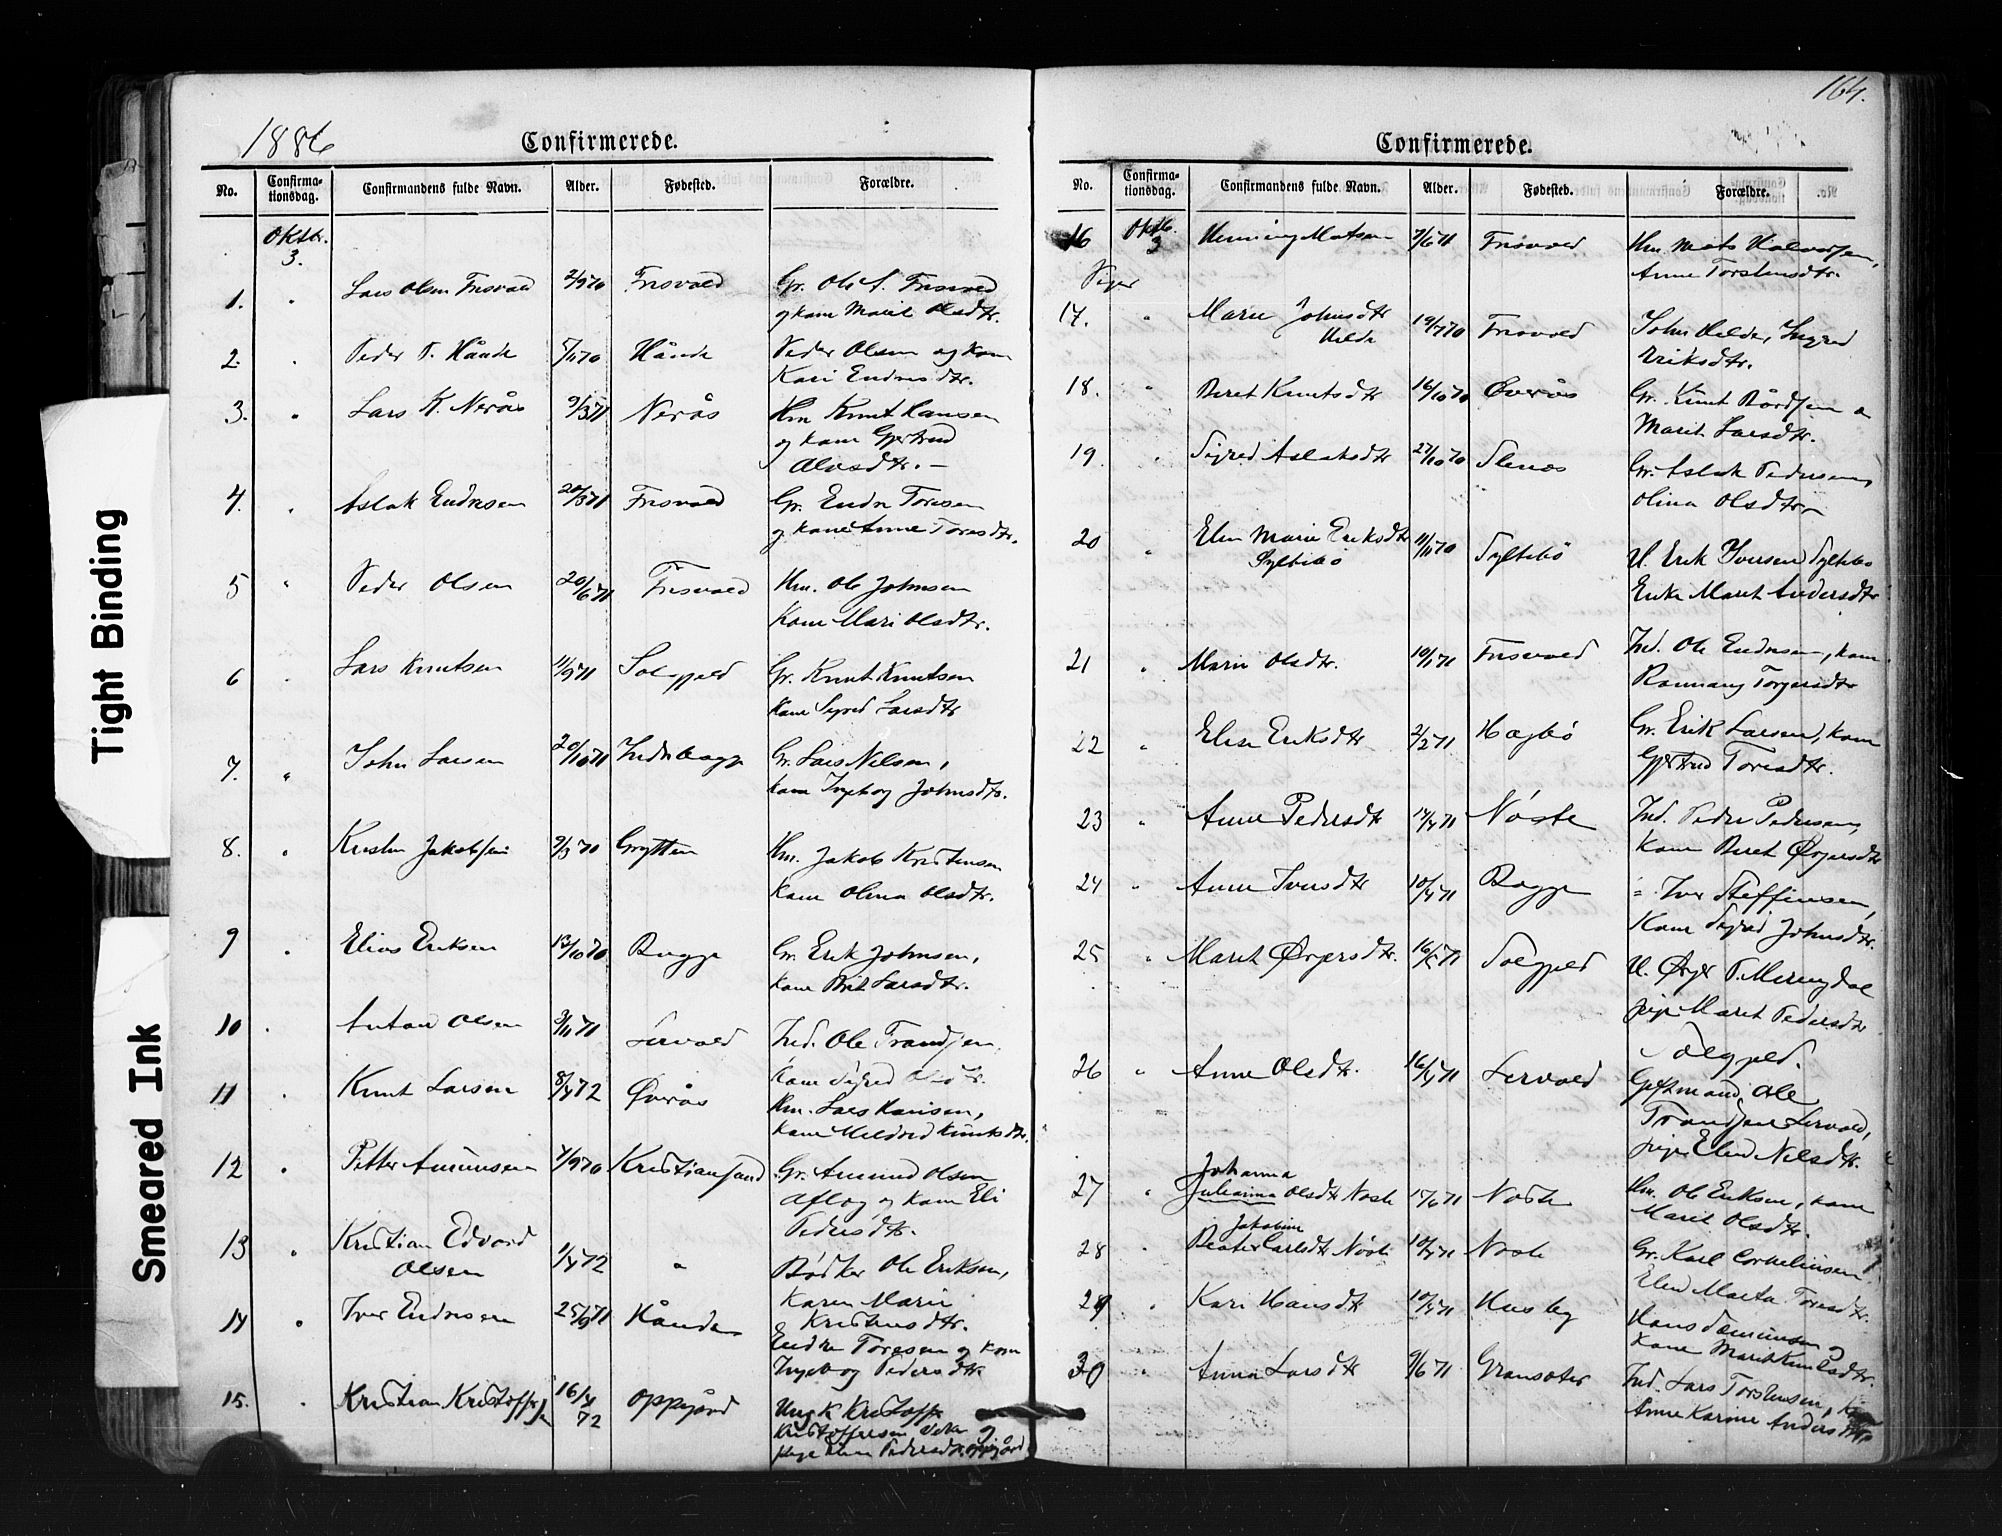 164.
1886
Confirmerede.
No. Confirmationsdag. Confirmandens fulde Navn. Alder. Fødested. Forældre.
Oktbr.
3.
1. " Lars Olsen Frisvold 2/9 70 Frisvold Gr. Ole A. Frisvold
og kone Marit Olsdtr.
2. " Peder P. Hånde 5/11 70 Hånde Peder Olsen og kone
Kari Endresdtr.
3. " Lars K. Nerås 9/3 71 Nerås Hm Knut Hansen
og kone Gjertrud
Olsdtr. –
4. " Aslak Endresen 20/3 71 Frisvold Gr. Endre Toresen
og kone Anne Toresdtr.
5 " Peder Olsen 20/6 71 Frisvold Hm. Ole Johnsen
Kone Mari Olsdtr.
6 " Lars Knutsen 11/9 71 Solgjeld Gr. Knut Knutsen
kone Sigred Larsdtr
7. " John Larsen 20/10 71 Gr. Lars Nilsen,
kone Ingebog Johnsdtr.
8. " Kristen Jakobsen 9/3 70 Grytten Hm. Jakob Kristensen
kone Olina Olsdtr.
9 " Elias Eriksen 13/10 70 Bugge Gr. Erik Johnsen,
kone Brit Larsdtr.
10 " Anton Olsen 3/11 71 Lervold Ind. Ole Trondsen
kone Sigred Olsdtr.
11 " Knut Larsen 8/4 72 Øverås Hm. Lars Hansen,
kone Mildred Knutsdtr.
12 " Petter Amunsen 4/9 70 Kristiansand Gr. Amund Olsen
Aflog og kone Eli
Pedersdtr.
13 " Kristian Edvard
Olsen 1/4 72 " Bødker Ole Eriksen,
Karen Marie
Kristensdtr.
14 " Iver Endresen 25/9 71 Hånde Endre Toresen og kone
Ingebog Pedersdtr
15. " Kristian Kristoffersen 16/4 72 Oppigård Ungk Kristoffer
Kristoffersen og
pige Pedersdtr. Oppigård
Confirmerede.
No. Confirmationsdag. Confirmandens fulde Navn. Alder. Fødested. Forældre.
16 Oktb. 3 Henning Matsen 7/6 71 Frisvold Hm Mats Halvorsen,
Anne Torstensdtr.
Piger
17. " Marie Johnsdtr
Helde 19/7 70 Frisvold John Helde, Ingred
Eriksdtr.
18. " Beret Knutsdtr 16/10 70 Øverås Gr. Knut Bårdsen
Marit Larsdtr.
19. " Sigred Aslaksdtr 27/10 70 Stenes Gr. Aslak Pedersen,
Olina Olsdtr –
20 " Elen Marie Eriksdtr
Syltebø 11/11 70 Syltebø U. Erik Iversen Syltebø
Enke Maret Andersdtr
21 " Marie Olsdtr. 10/1 71 Frisvold Ind. Ole Endresen, kone
Rannaug Torgersdtr
22 " Elise Eriksdtr 2/2 71 Hagbø Gr. Erik Larsen, kone
Gjertrud Toresdtr.
23 " Anne Pedersdtr 14/4 71 Nøste Ind. Peder Pedersen,
Kone Beret Ørjersdtr
24 " Anne Iversdtr 10/4 71 Bugge " Iver Steffensen,
Kone Sigrid Johnsdtr.
25 " Maret Ørjersdtr. 16/5 71 Solgjeld U. Ørjer P. Meringdal
pige Maret Pedersdtr
Solgjeld.
26 " Anne Olsdtr. 16/4 71 Lervold Giftmand, Ole
Trondsen Lervold,
pige Elen Nilsdtr.
27 " Johanna
Julianna Olsdtr Nøste 17/6 71 Nøste Hm. Ole Eriksen, kone
Maret Olsdtr.
28 " Jakobine
Beate Carlsdtr Nøste 10/7 71 Nøste Gr. Karl Corneliusen
Elen Marta Toresdtr.
29 " Kari Hansdtr 10/7 71 Husby Hans Amunsen og
kone Marit Knutsdtr.
30 " Anna Larsdtr 9/6 71 Gransæter Ind. Lars Torstensen,
Anne Karine Andersdtr
Tight Binding
Smeared Ink